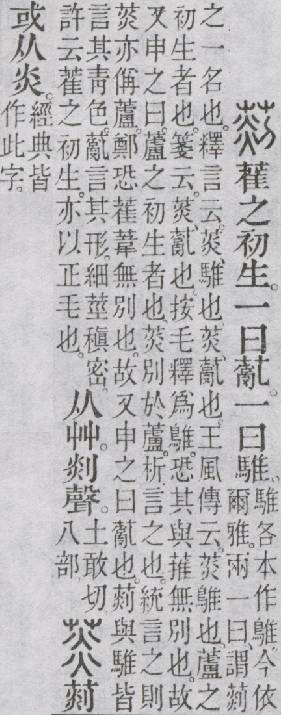 𦵹萑之初生。一曰薍。一曰騅。騅各本作鵻。今依
爾雅。兩一曰、謂𦵹
之一名也。釋言云。菼、騅也。菼、薍也。王風傳云。菼、鵻也。蘆之
初生者也。箋云。菼、薍也。按毛釋爲鵻。恐其與萑無別也。故
又申之曰。蘆之初生者也。菼別於蘆。析言之也。統言之則
菼亦偁蘆。鄭恐萑葦無別也。故又申之曰薍也。𦵹與騅皆
言其靑色。薍言其形細莖稹密。
許云萑之初生。亦以正毛也。
从艸剡聲。土敢切
八部
菼𦵹
或从炎。經典皆
作此字。